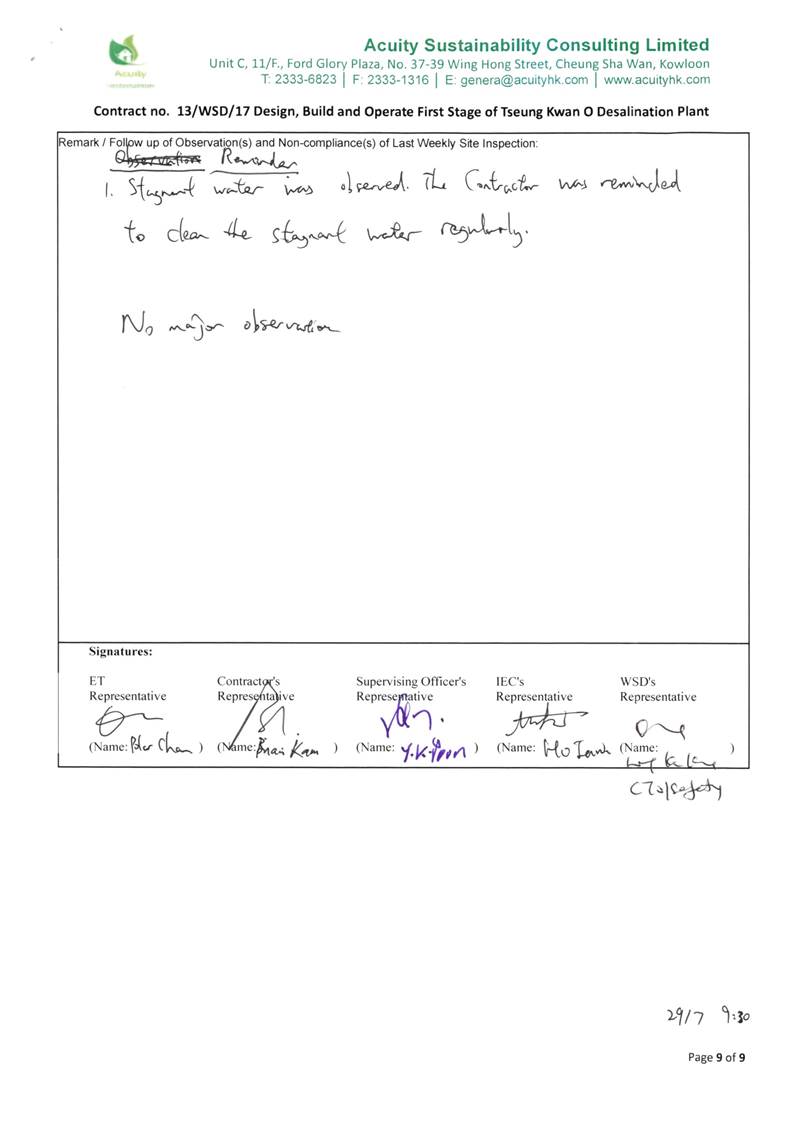 Acuity
Acuity Sustainability Consulting Limited
Unit C, 11/F., Ford Glory Plaza, No. 37-39 Wing Hong Street, Cheung Sha Wan, Kowloon
T: 2333-6823 | F: 2333-1316 | E: genera@acuityhk.com | www.acuityhk.com
Contract no. 13/WSD/17 Design, Build and Operate First Stage of Tseung Kwan O Desalination Plant
Remark / Follow up of Observation(s) and Non-compliance(s) of Last Weekly Site Inspection:
Observation Reminder
1. Stagnant water was observed. The Contractor was reminded
to clean the stagnant water regularly.
No major observation
Signatures:
ET Contractor's Supervising Officer's IEC's WSD's
Representative Representative Representative Representative Representative
(Name: Chan ) (Name: Brian Kam ) (Name: Y.K. Poon ) (Name: Ho ) (Name: )
/Safety
29/7 9:30
Page 9 of 9